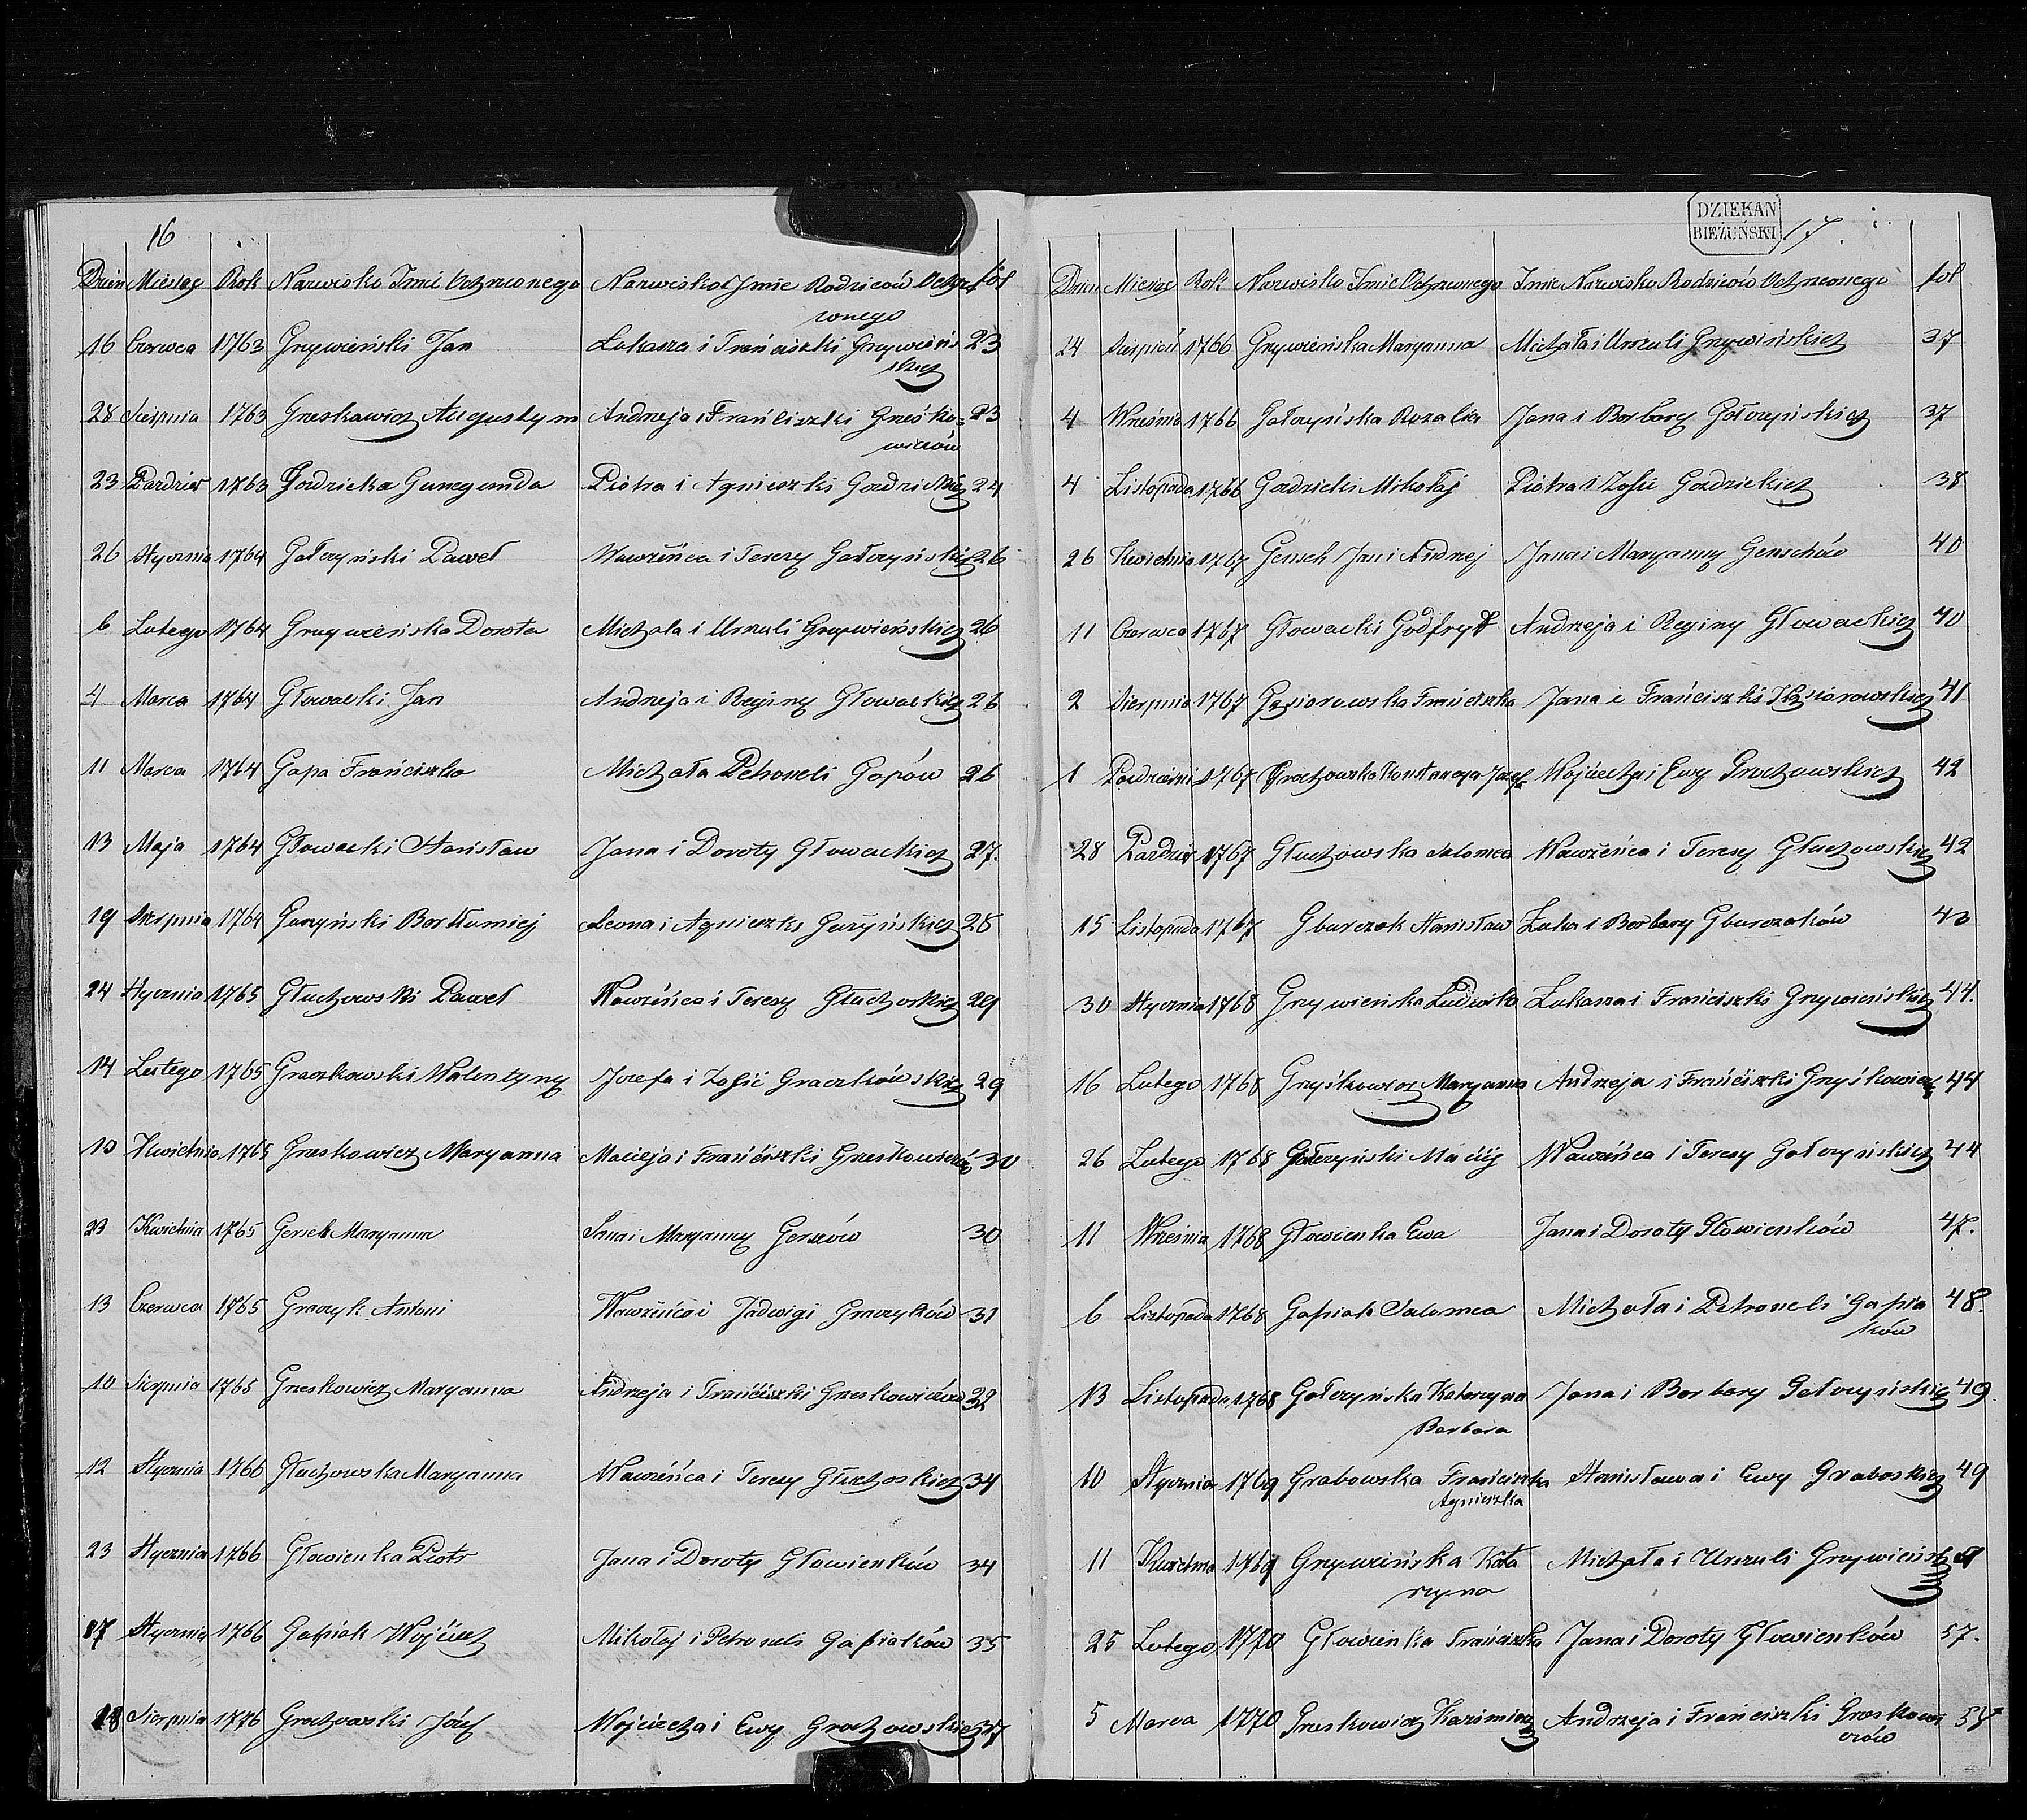 16
Dzień Miesiąc Rok Nazwisko Imie Ochrzconego Nazwisko i Imie Rodziców Ochrz fol
conego
16 Czerwca 1763 Grzywieński Jan Łukasza i Franciszki Grzywieńs 23
kich
28 Sierpnia 1763 Greskowicz Augustyn Andrzeja i Franciszki Greśko= 23
wiczów
23 Paździer 1763 Gozdzicka Gunegunda Piotra i Agnieszki Gozdzickich 24
26 Stycznia 1764 Gołczyński Paweł Wawrzeńca i Teresy Gołczyńskich 26
6 Lutego 1764 Grzywieńska Dorota Michała i Urszuli Grzywieńskich 26
4 Marca 1764 Głowacki Jan Andrzeja i Reginy Głowackich 26
11 Marca 1764 Gapa Franciszka Michała Petroneli Gapów 26
13 Maja 1764 Głowacki Stanisław Jana i Doroty Głowackich 27.
19 Sierpnia 1764 Guzyński Bartłumiej Leona i Agnieszki Guzyńskich 28
24 Stycznia 1765 Głuchowski Paweł Wawrzeńca i Teresy Głuchoskich 29
14 Lutego 1765 Graczkowski Walentyny Jozefa i Zofii Graczkowskich 29
10 Kwietnia 1765 Greskowicz Maryanna Macieja i Franciszki Greskowiczów 30
23 Kwietnia 1765 Gersek Maryanna Jana i Maryanny Gerszów 30
13 Czerwca 1765 Graczyk Antoni Wawrzeńca i Jadwigi Graczyków 31
10 Sierpnia 1765 Greskowicz Maryanna Andrzeja i Franciszki Greskowiczów 32
12 Stycznia 1766 Głuchowska Maryanna Wawrzeńca i Teresy Głuchoskich 34
23 Stycznia 1766 Głowienka Piotr Jana i Doroty Głowienków 34
17 Stycznia 1766 Gapiak Wojciech Mikołaj i Petroneli Gapiaków 35
18 Sierpnia 1776 Grochowski Józef Wojciecha i Ewy Grochowskich 37
DZIEKAN
BIEŻUŃSKI
17.
Dzień Miesiąc Rok Nazwisko Imie Ochrzconego Imie Nazwisko Rodziców Ochrzconego fol
24 Sierpień 1766 Grzywieńska Maryanna Michała i Urszuli Grzywińskich 37
4 Września 1766 Gołczyńska Rozalia Jana i Barbary Gołczyńskich 37
4 Listopada 1766 Gozdzicki Mikołaj Piotra i Zofii Gozdzickich 38
26 Kwietnia 1767 Gensek Jan i Andrzej Jana i Maryanny Genschów 40
11 Czerwca 1767 Głowacki Godfryd Andrzeja i Reginy Głowackich 40
2 Sierpnia 1767 Gąsiorowska Franciszka Jana i Franciszki Gąsiorowskich 41
1 Październi 1767 Grochowska Konstancya Jozefa Wojciecha i Ewy Grochowskich 42
28 Paździer 1767 Głuchowska Salomea Wawrzeńca i Teresy Głuchowskich 42
15 Listopada 1767 Gburczak Stanisław Łuka i Barbary Gburczaków 43
30 Stycznia 1768 Grzywienska Ludwika Łukasza i Franciszki Grzywieńskich 44.
16 Lutego 1768 Gryśkowicz Maryanna Andrzeja i Franciszki Gryśkowicz 44
26 Lutego 1768 Gołczyński Maciej Wawrzeńca i Teresy Gołczyńskich 44
11 Września 1768 Głowienka Ewa Jana i Doroty Głowienków 47.
6 Listopada 1768 Gapiak Salomea Michała i Petroneli Gapia 48.
ków
13 Listopada 1768 Gołczyńska Katarzyna Jana i Barbary Gołczyńskich 49
Barbara
10 Stycznia 1769 Grabowska Franciszka Stanisława i Ewy Graboskich 49
Agnieszka
11 Kwietnia 1769 Grzywińska Kata Michała i Urszuli Grzywieńsk
rzyna
25 Lutego 1770 Głowienka Franciszka Jana i Doroty Głowienków 57.
5 Marca 1770 Greskowicz Kazimierz Andrzeja i Franciszki Greskowi
czów